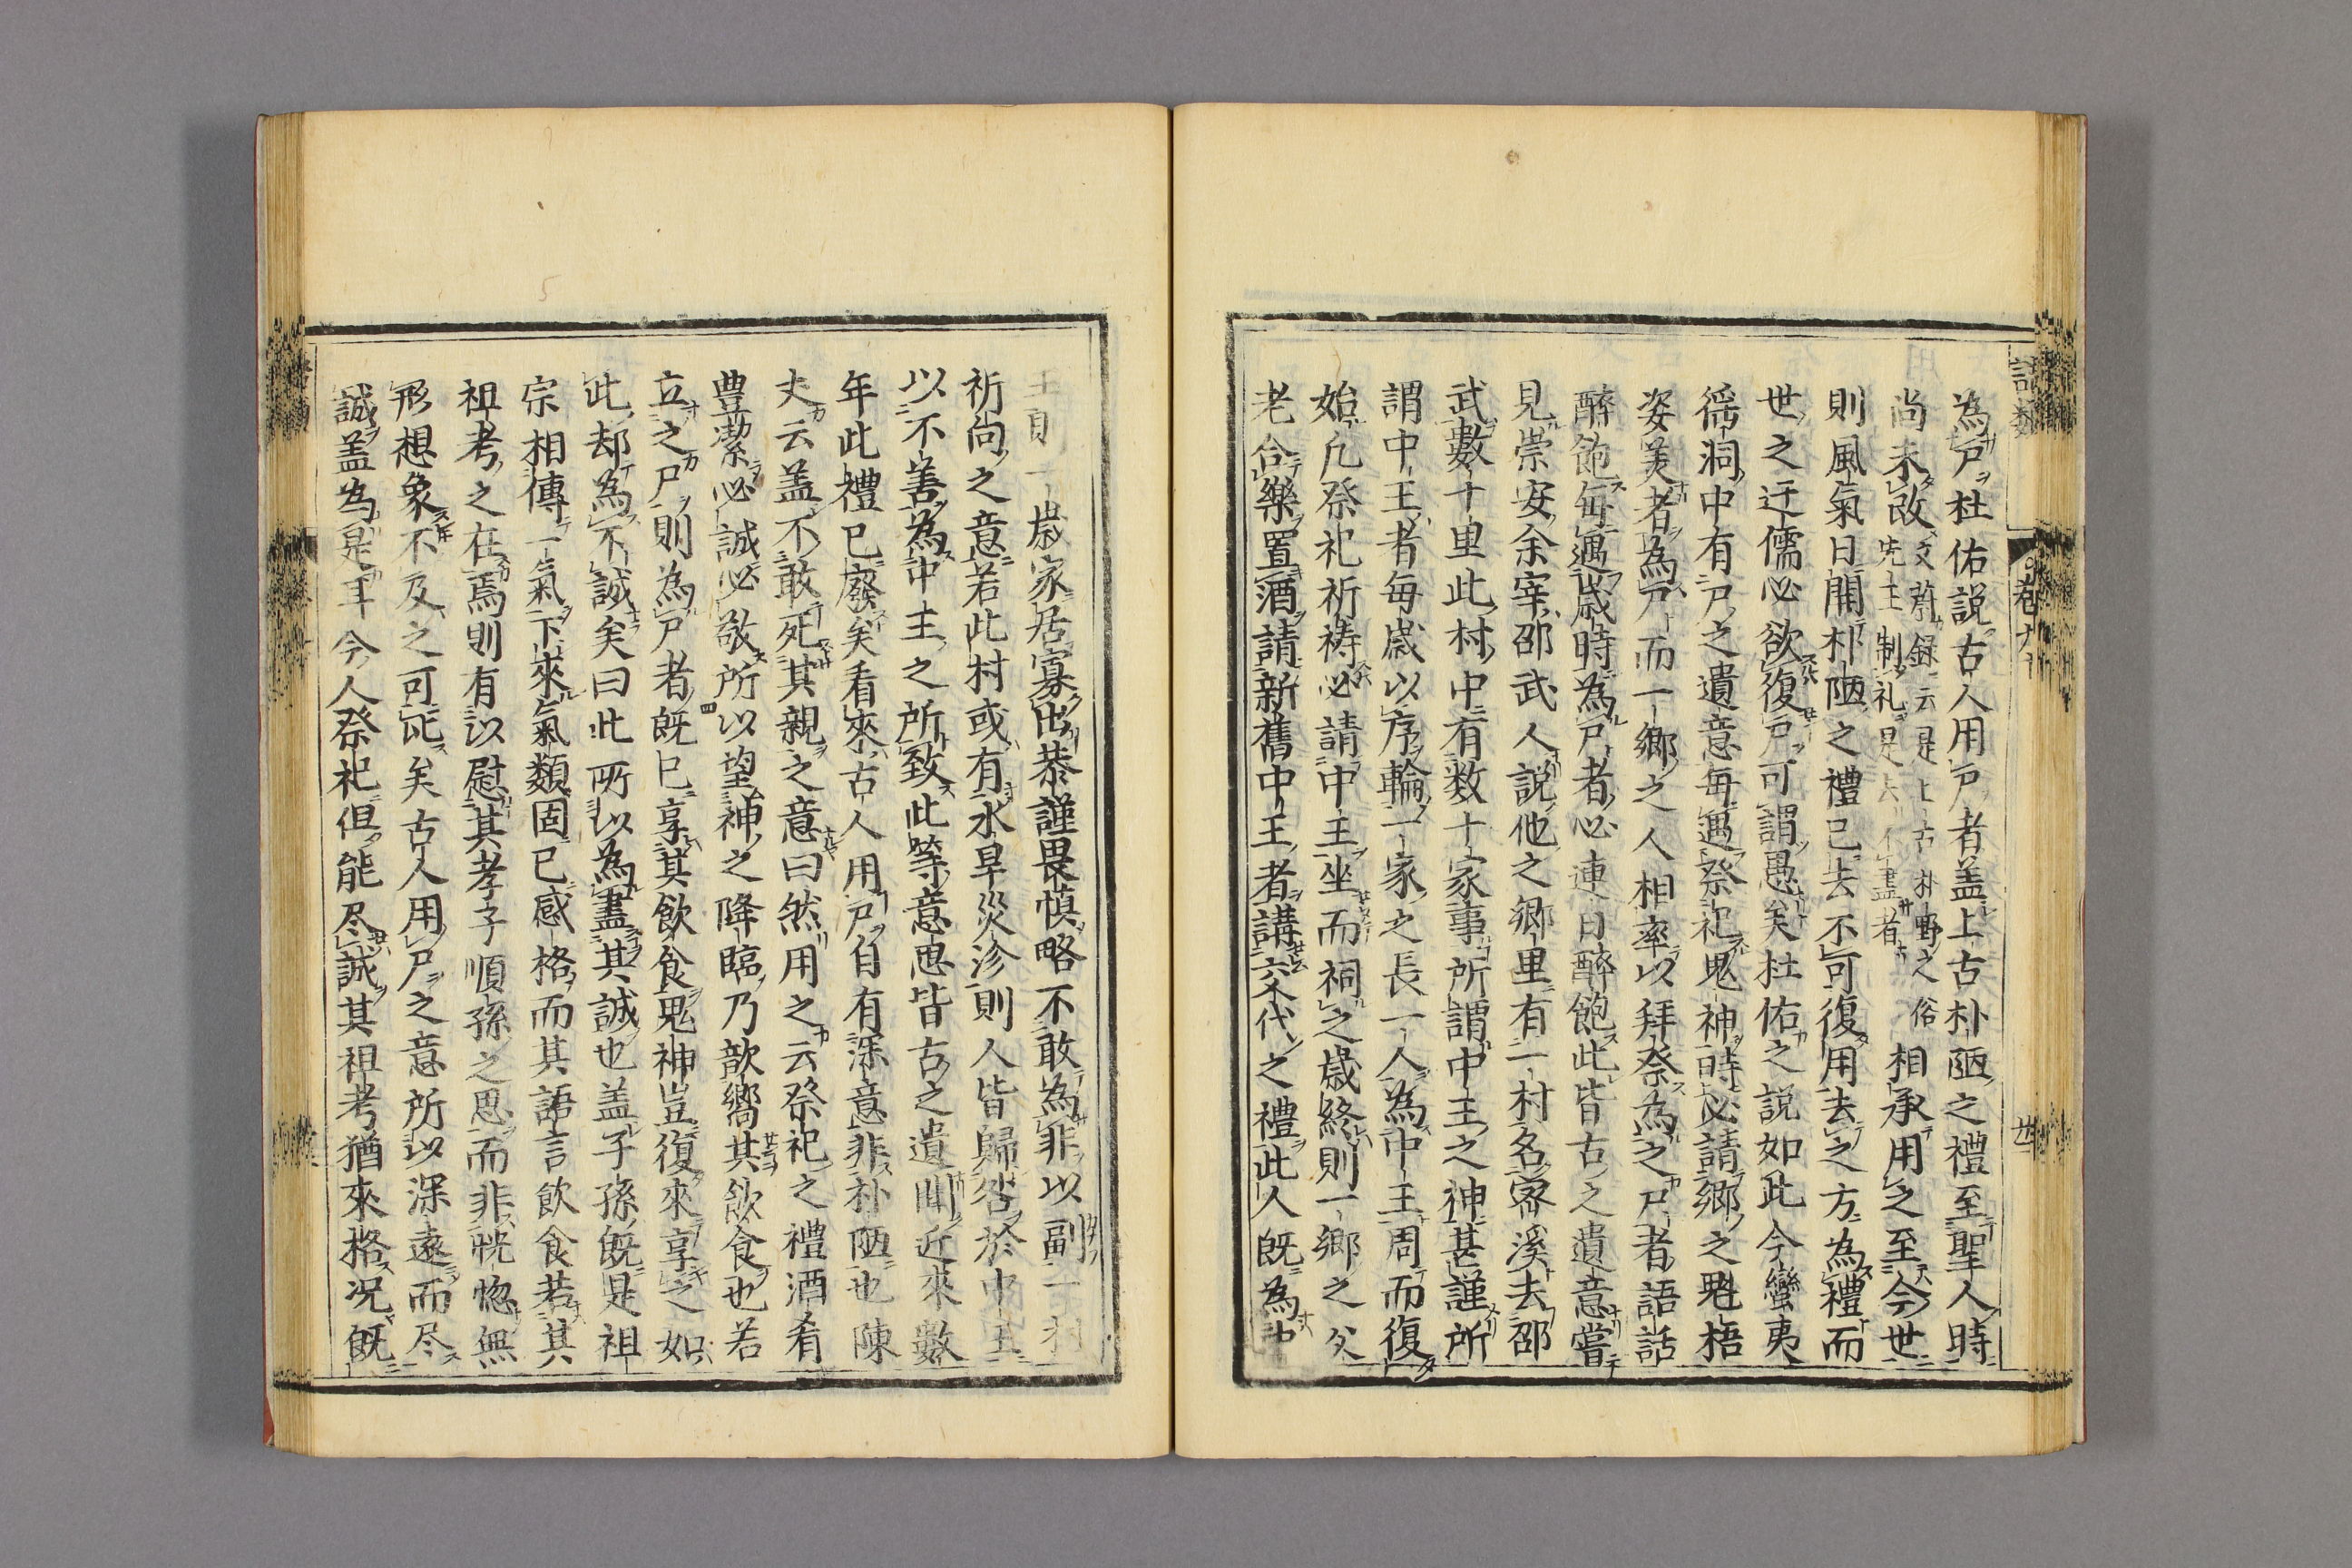 語類 卷九十 廿
為尸杜佑說古人用尸者盖上古朴陋之禮至聖人時
尚未改文蔚録云是上古朴野之俗先王制礼是去不盡者相承用之至今世
則風氣日開朴陋之禮已去不可復用去之方為禮而
世之迂儒必欲復尸可謂愚矣杜佑之說如此今蠻夷
徭洞中有尸之遺意每遇祭祀鬼神時必請鄉之魁梧
姿美者為尸而一鄉之人相率以拜祭為之尸者語話
醉飽每遇歳時為尸者必連日醉飽此皆古之遺意嘗
見崇安余宰邵武人說他之鄉里有一村名宻溪去邵
武數十里此村中有数十家事所謂中王之神甚謹所
謂中王者每歲以序輪一家之長一人為中王周而復
始凡祭祀祈祷必請中王坐而祠之歳終則一鄉之父
老合樂置酒請新舊中王者講交代之禮此人既為中
王則一歲家居寡出恭謹畏慎略不敢為非以副一村
祈向之意若此村或有水旱災沴則人皆歸咎於中王
以不善為中主之所致此等意思皆古之遺聞近來數
年此禮已廢矣看來古人用尸自有深意非朴陋也陳
丈云盖不敢死其親之意曰然用之云祭祀之禮酒肴
豊潔必誠必敬所以望神之降臨乃歆嚮其飲食也若
立之尸則為尸者既已享其飲食鬼神豈復來享之如
此却為不誠矣曰此所以為盡其誠也盖子孫既是祖
宗相傳一氣下來氣類固已感格而其語言飲食若其
祖考之在焉則有以慰其孝子順孫之思而非恍惚無
形想象不及之可比矣古人用尸之意所以深遠而尽
誠盖為是耳今人祭祀但能尽誠其祖考猶來格况既